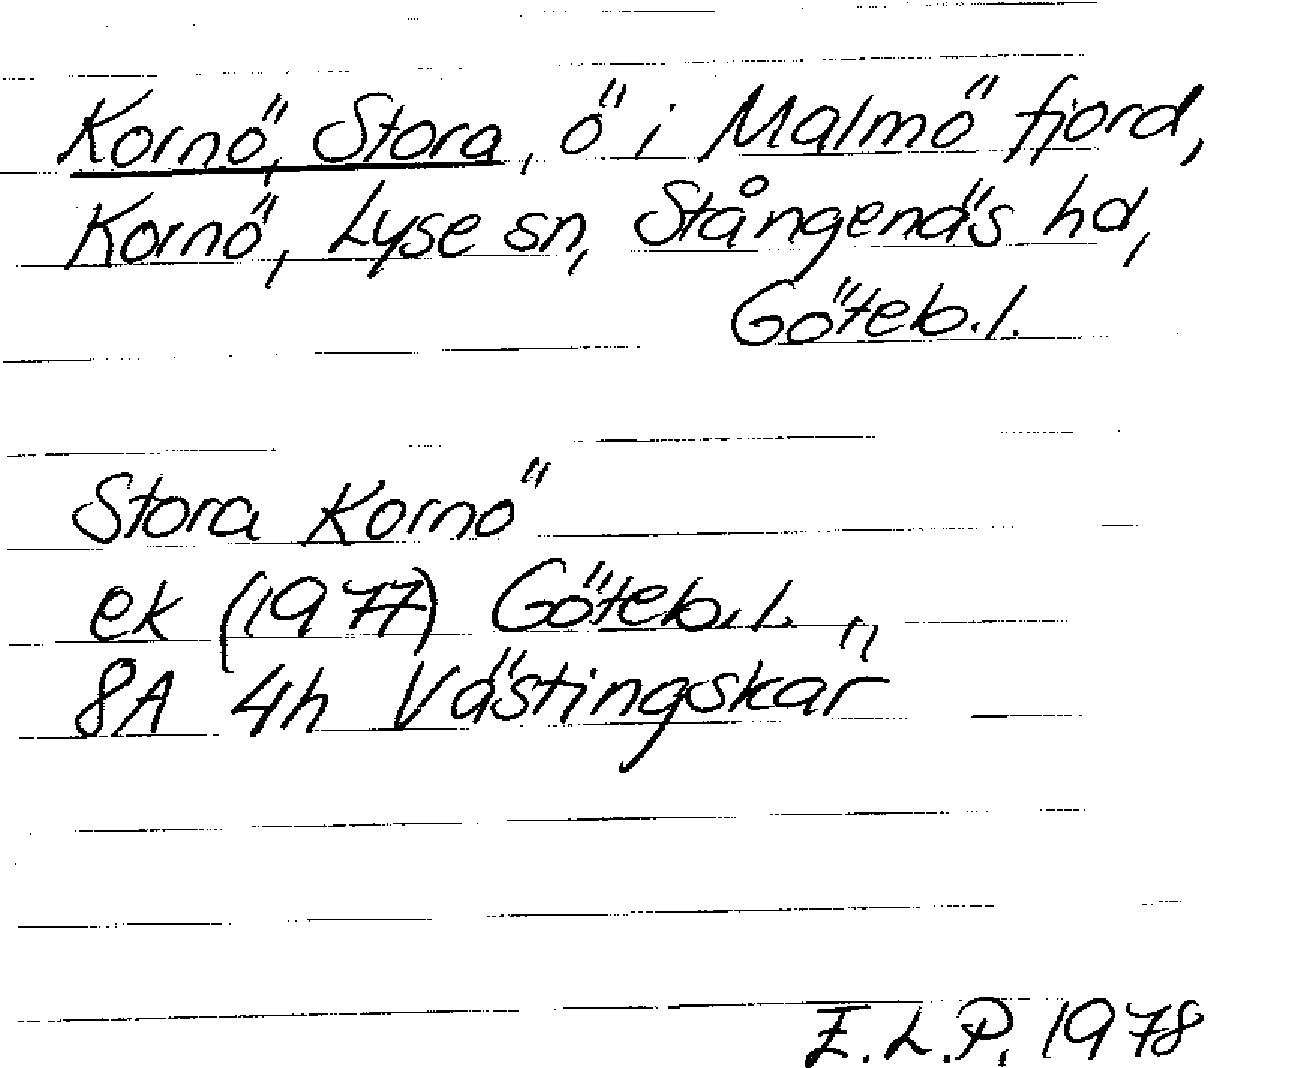 Kornö, Stora, ö i Malmö fjord,
Kornö, Lyse sn, Stångenäs hd,
Göteb.l.
Stora Kornö
ek (1977) Göteb.l.
8A 4h Västingskär
E.L.P. 1978